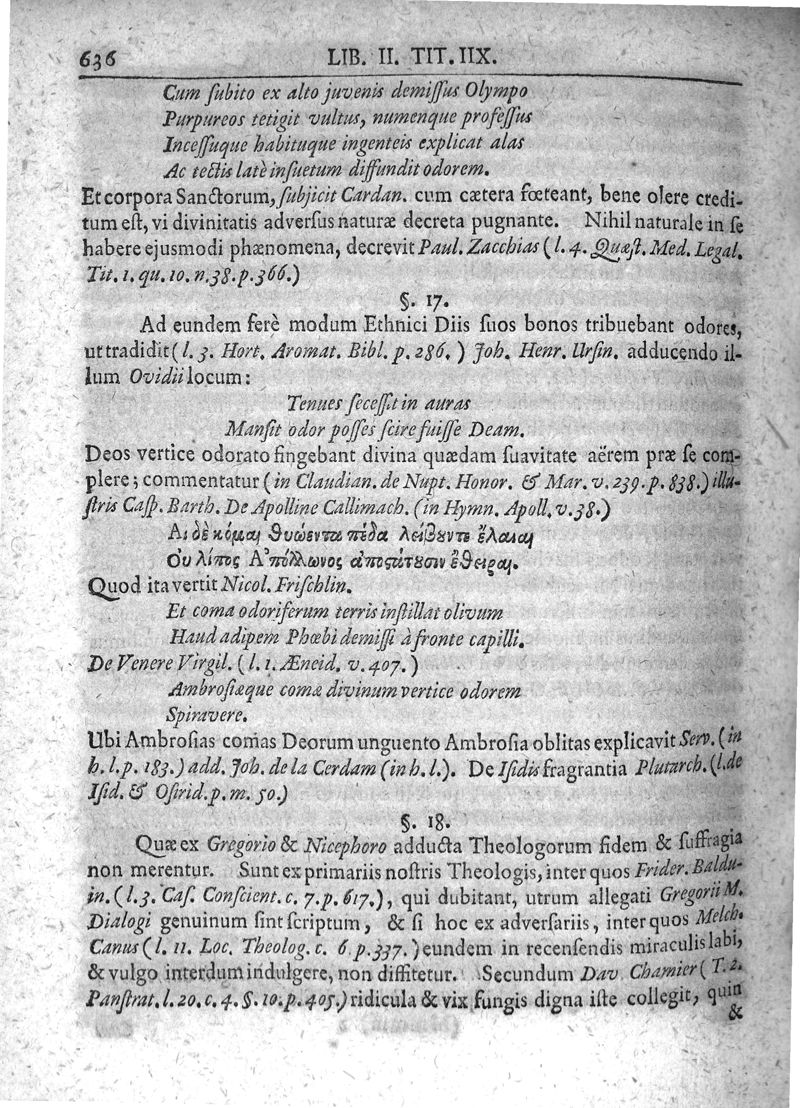 636 LIB. II. TIT. IIX.
Cum ſubito ex alto juvenis demiſſus Olympo
Purpureos tetigit vultus, numenque profeſſus
Inceſſuque habituque ingenteis explicat alas
Ac tectis latè inſuetum diffundit odorem.
Et corpora Sanctorum, ſubjicit Cardan. cum cætera fœteant, bene olere credi-
tum eſt, vi divinitatis adverſus naturæ decreta pugnante. Nihil naturale in ſe
habere ejusmodi phænomena, decrevit Paul. Zacchias (l. 4. Quæſt. Med. Legal.
Tit. 1. qu. 10. n. 38. p. 366.)
§. 17.
Ad eundem ferè modum Ethnici Diis ſuos bonos tribuebant odores,
ut tradidit (l. 3. Hort. Aromat. Bibl. p. 286.) Joh. Henr. Urſin. adducendo il-
lum Ovidii locum:
Tenues ſeceſſit in auras
Manſit odor poſſes ſcire fuiſſe Deam.
Deos vertice odorato fingebant divina quædam ſuavitate aërem præ ſe com-
plere; commentatur (in Claudian. de Nupt. Honor. & Mar. v. 239. p. 838.) illu-
ſtris Caſp. Barth. De Apolline Callimach. (in Hymn. Apoll. v. 38.)
Αι δὲ κόμαι θυώεντα πέδα λείβουντι ἔλαιαι
Ου λίπος Α'πόλλωνος αποστάζουσιν ἔθειραι.
Quod ita vertit Nicol. Friſchlin.
Et coma odoriferum terris inſtillat olivum
Haud adipem Phœbi demiſſi à fronte capilli.
De Venere Virgil. (l. 1. Æneid. v. 407.)
Ambroſiæque comæ divinum vertice odorem
Spiravere.
Ubi Ambroſias comas Deorum unguento Ambroſia oblitas explicavit Serv. (in
h. l. p. 183.) add. Joh. de la Cerdam (in h. l.). De Iſidis fragrantia Plutarch. (l. de
Iſid. & Oſirid. p. m. 50.)
§. 18.
Quæ ex Gregorio & Nicephoro adducta Theologorum fidem & ſuffragia
non merentur. Sunt ex primariis noſtris Theologis, inter quos Frider. Baldu-
in. (l. 3. Caſ. Conſcient. c. 7. p. 617.), qui dubitant, utrum allegati Gregorii M.
Dialogi genuinum ſint ſcriptum, & ſi hoc ex adverſariis, inter quos Melch.
Canus (l. 11. Loc. Theolog. c. 6 p. 337.) eundem in recenſendis miraculis labi,
& vulgo interdum indulgere, non diffitetur. Secundum Dav Chamier (T. 2.
Panſtrat. l. 20. c. 4. §. 10. p. 405.) ridicula & vix fungis digna iſte collegit, quin
&